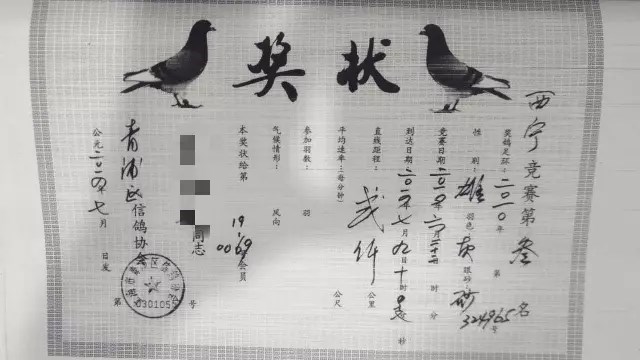 奖状
西宁竞赛第叁名
奖鸽足环:二〇一〇年 第324965号
性别:雄 羽色:灰 眼砂:砂
竞赛日期:二〇一 年六月二十 日 时 分
到达日期:二〇一 年七月九日十时 秒
直线距程: 仟 公里
平均速率:(每分钟) 公尺
参加羽数: 羽
气候情形: 风向
本奖状给第 19 0069 会员
同志
青浦区信鸽协会
公元二〇一 年七月 日发
第0301055号